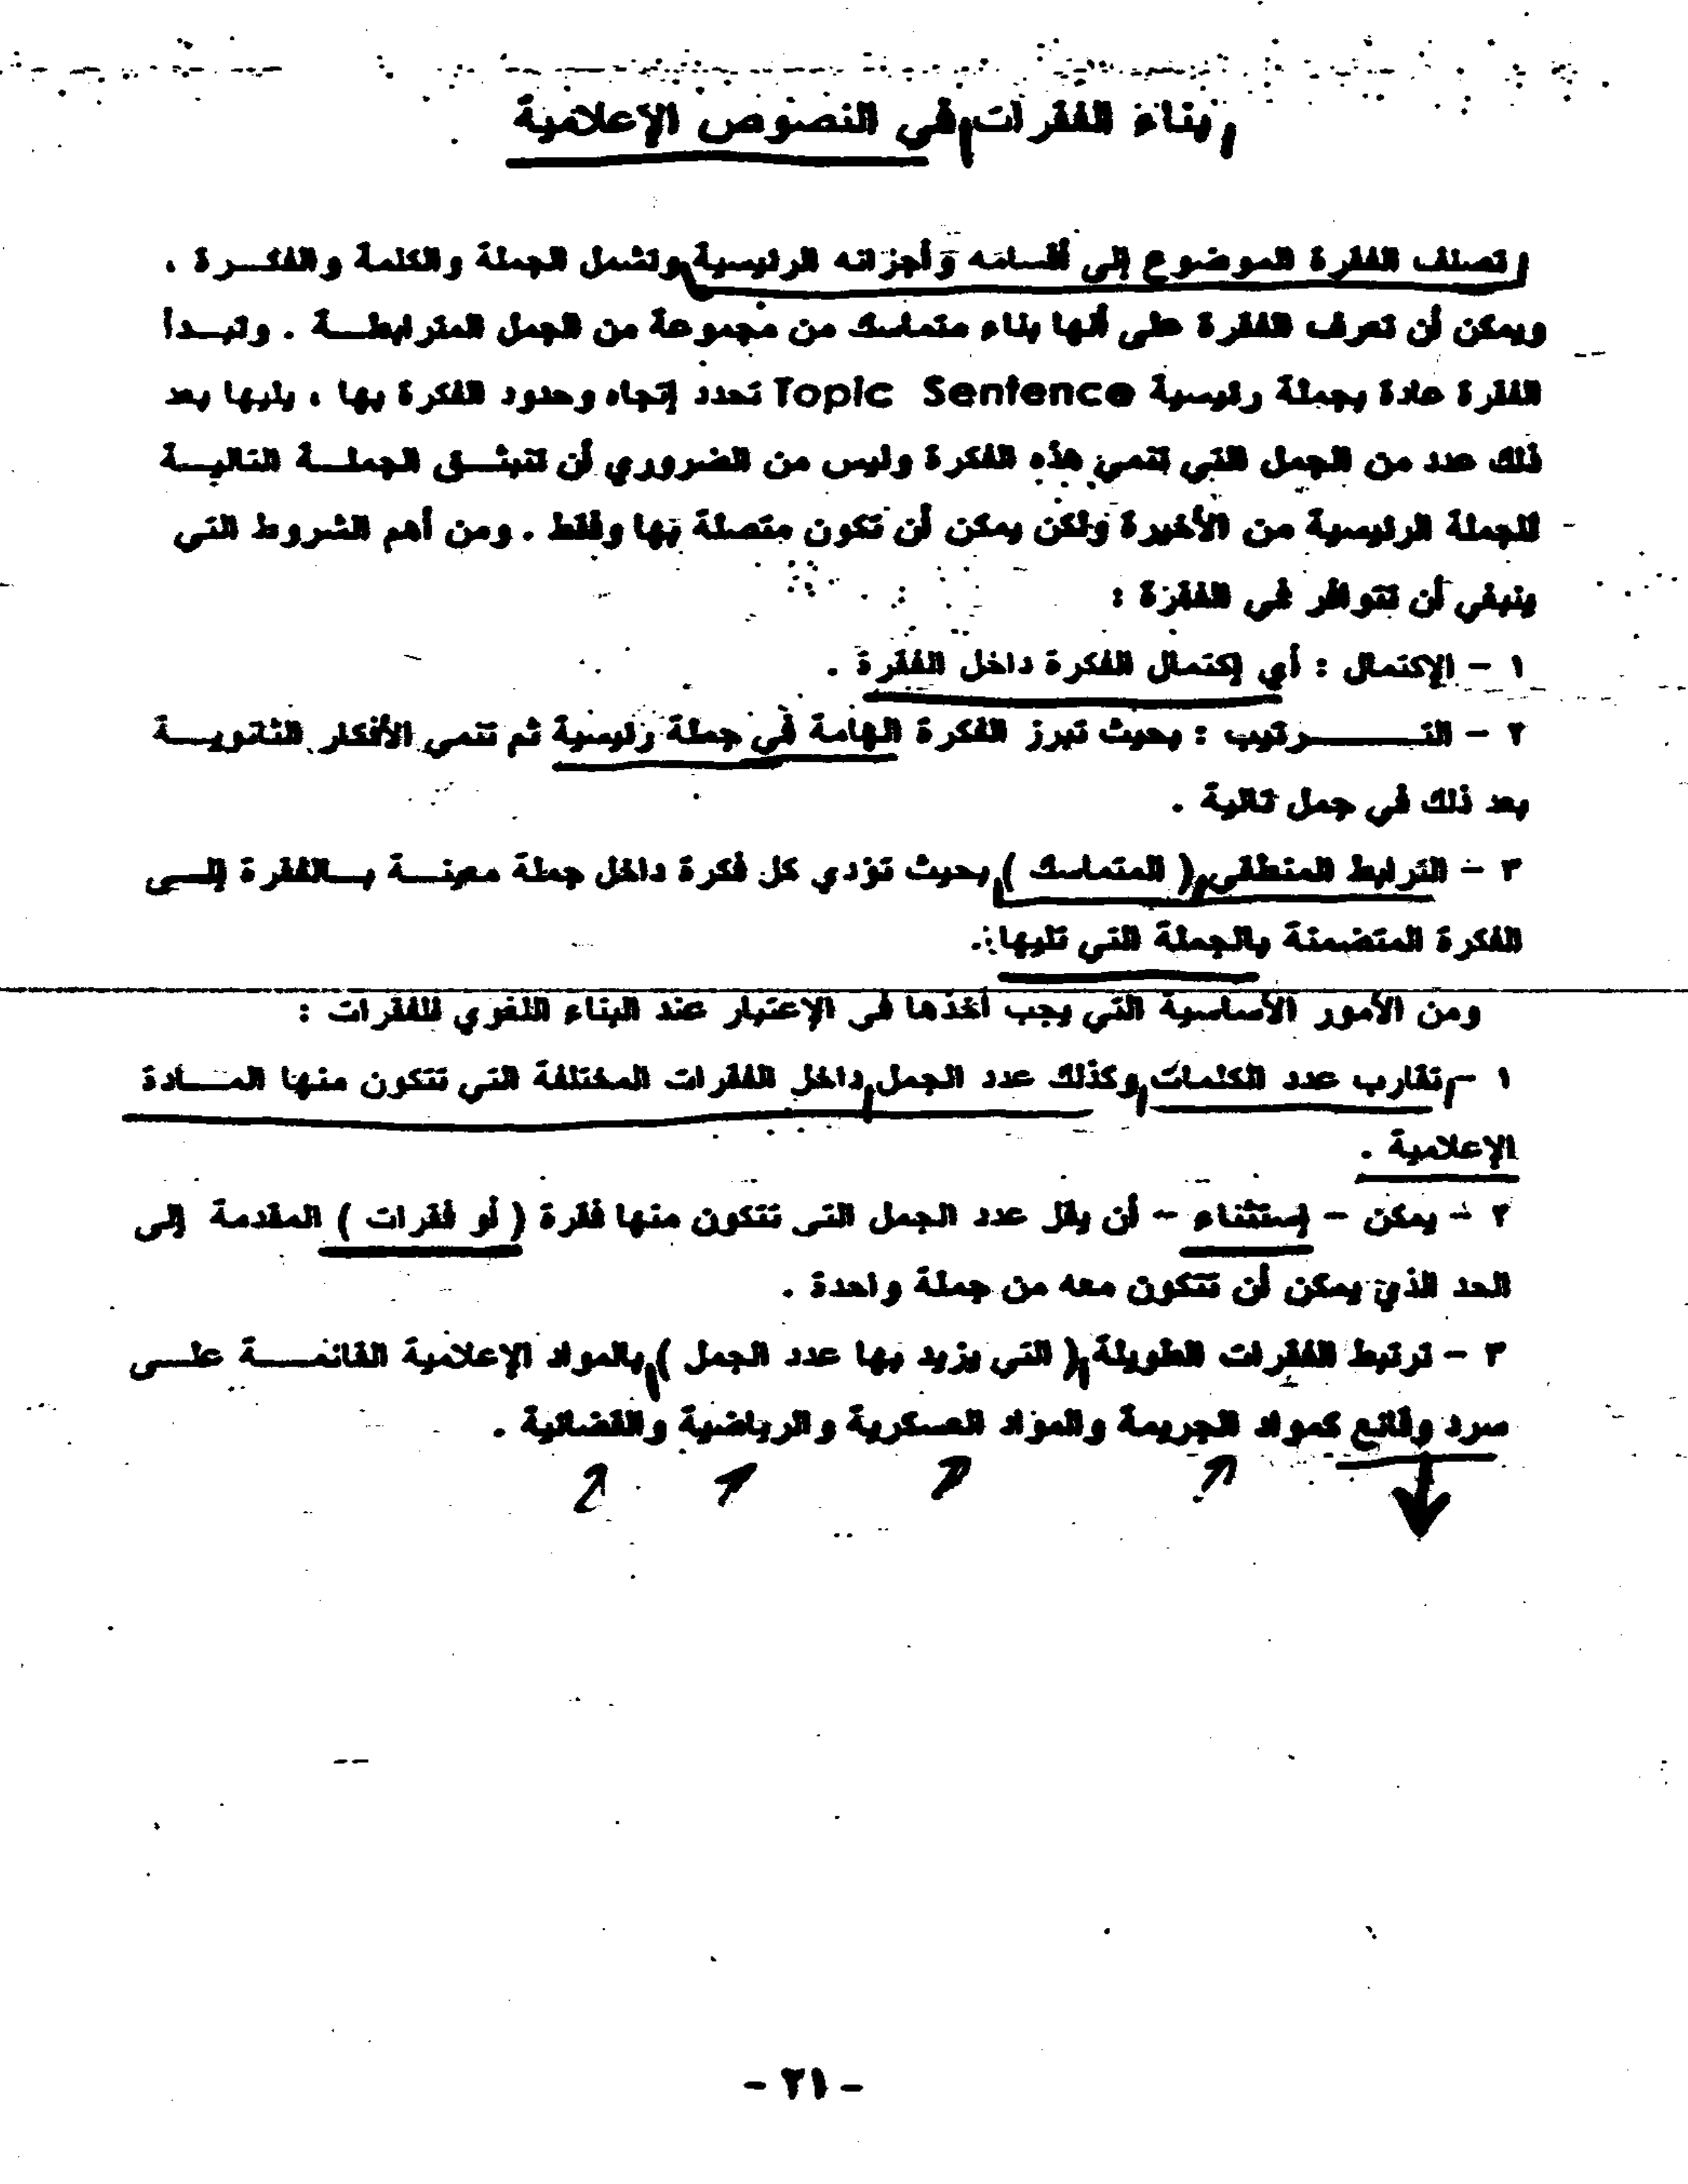 بناء الفقرات في النصوص الإعلامية
تصنف الفقرة الموضوع إلى أقسامه وأجزائه الرئيسية وتشمل الجملة والكلمة والفكـرة ،
ويمكن أن تعرف الفقرة على أنها بناء متماسك من مجموعة من الجمل المترابطـة . وتبـدأ
الفقرة عادة بجملة رئيسية Topic Sentence تحدد إتجاه وحدود الفكرة بها ، يليها بعد
ذلك عدد من الجمل التي تنمي هذه الفكرة وليس من الضروري أن تنبثـق الجملـة التاليـة
للجملة الرئيسية من الأخيرة ولكن يمكن أن تكون متصلة بها وفقط . ومن أهم الشروط التي
ينبغي أن تتوافر في الفقرة :
١ - الإكتمال : أي إكتمال الفكرة داخل الفقرة .
٢ - التـــــرتيب : بحيث تبرز الفكرة الهامة في جملة رئيسية ثم تنمي الأفكار الثانويـة
بعد ذلك في جمل تالية .
٣ - الترابط المنطقي ( المتماسك ) بحيث تؤدي كل فكرة داخل جملة معينـة بـالفقرة إلـى
الفكرة المتضمنة بالجملة التي تليها .
ومن الأمور الأساسية التي يجب أخذها في الإعتبار عند البناء اللغوي للفقرات :
١ - تقارب عدد الكلمات وكذلك عدد الجمل داخل الفقرات المختلفة التي تتكون منها المـادة
الإعلامية .
٢ - يمكن - إستثناء - أن يقل عدد الجمل التى تتكون منها فقرة ( أو فقرات ) المقدمة إلى
الحد الذي يمكن أن تتكون معه من جملة واحدة .
٣ - ترتبط الفقرات الطويلة ( التي يزيد بها عدد الجمل ) بالمواد الإعلامية القائمـة علـى
سرد وقائع كمواد الجريمة والمواد العسكرية والرياضية والقضائية .
- ٢١ -